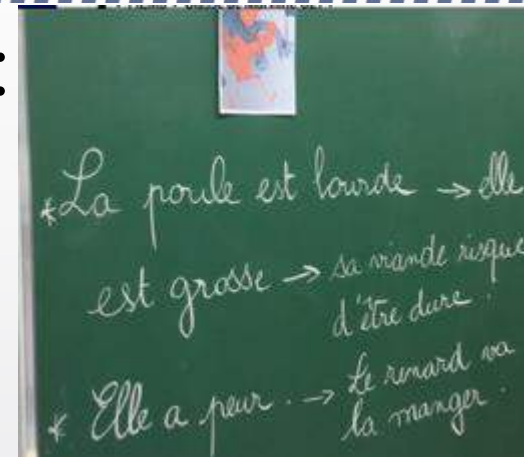 *La poule est lourde → elle
est grosse → sa viande risque
d'être dure.
* Elle a peur. → Le renard va
la manger.